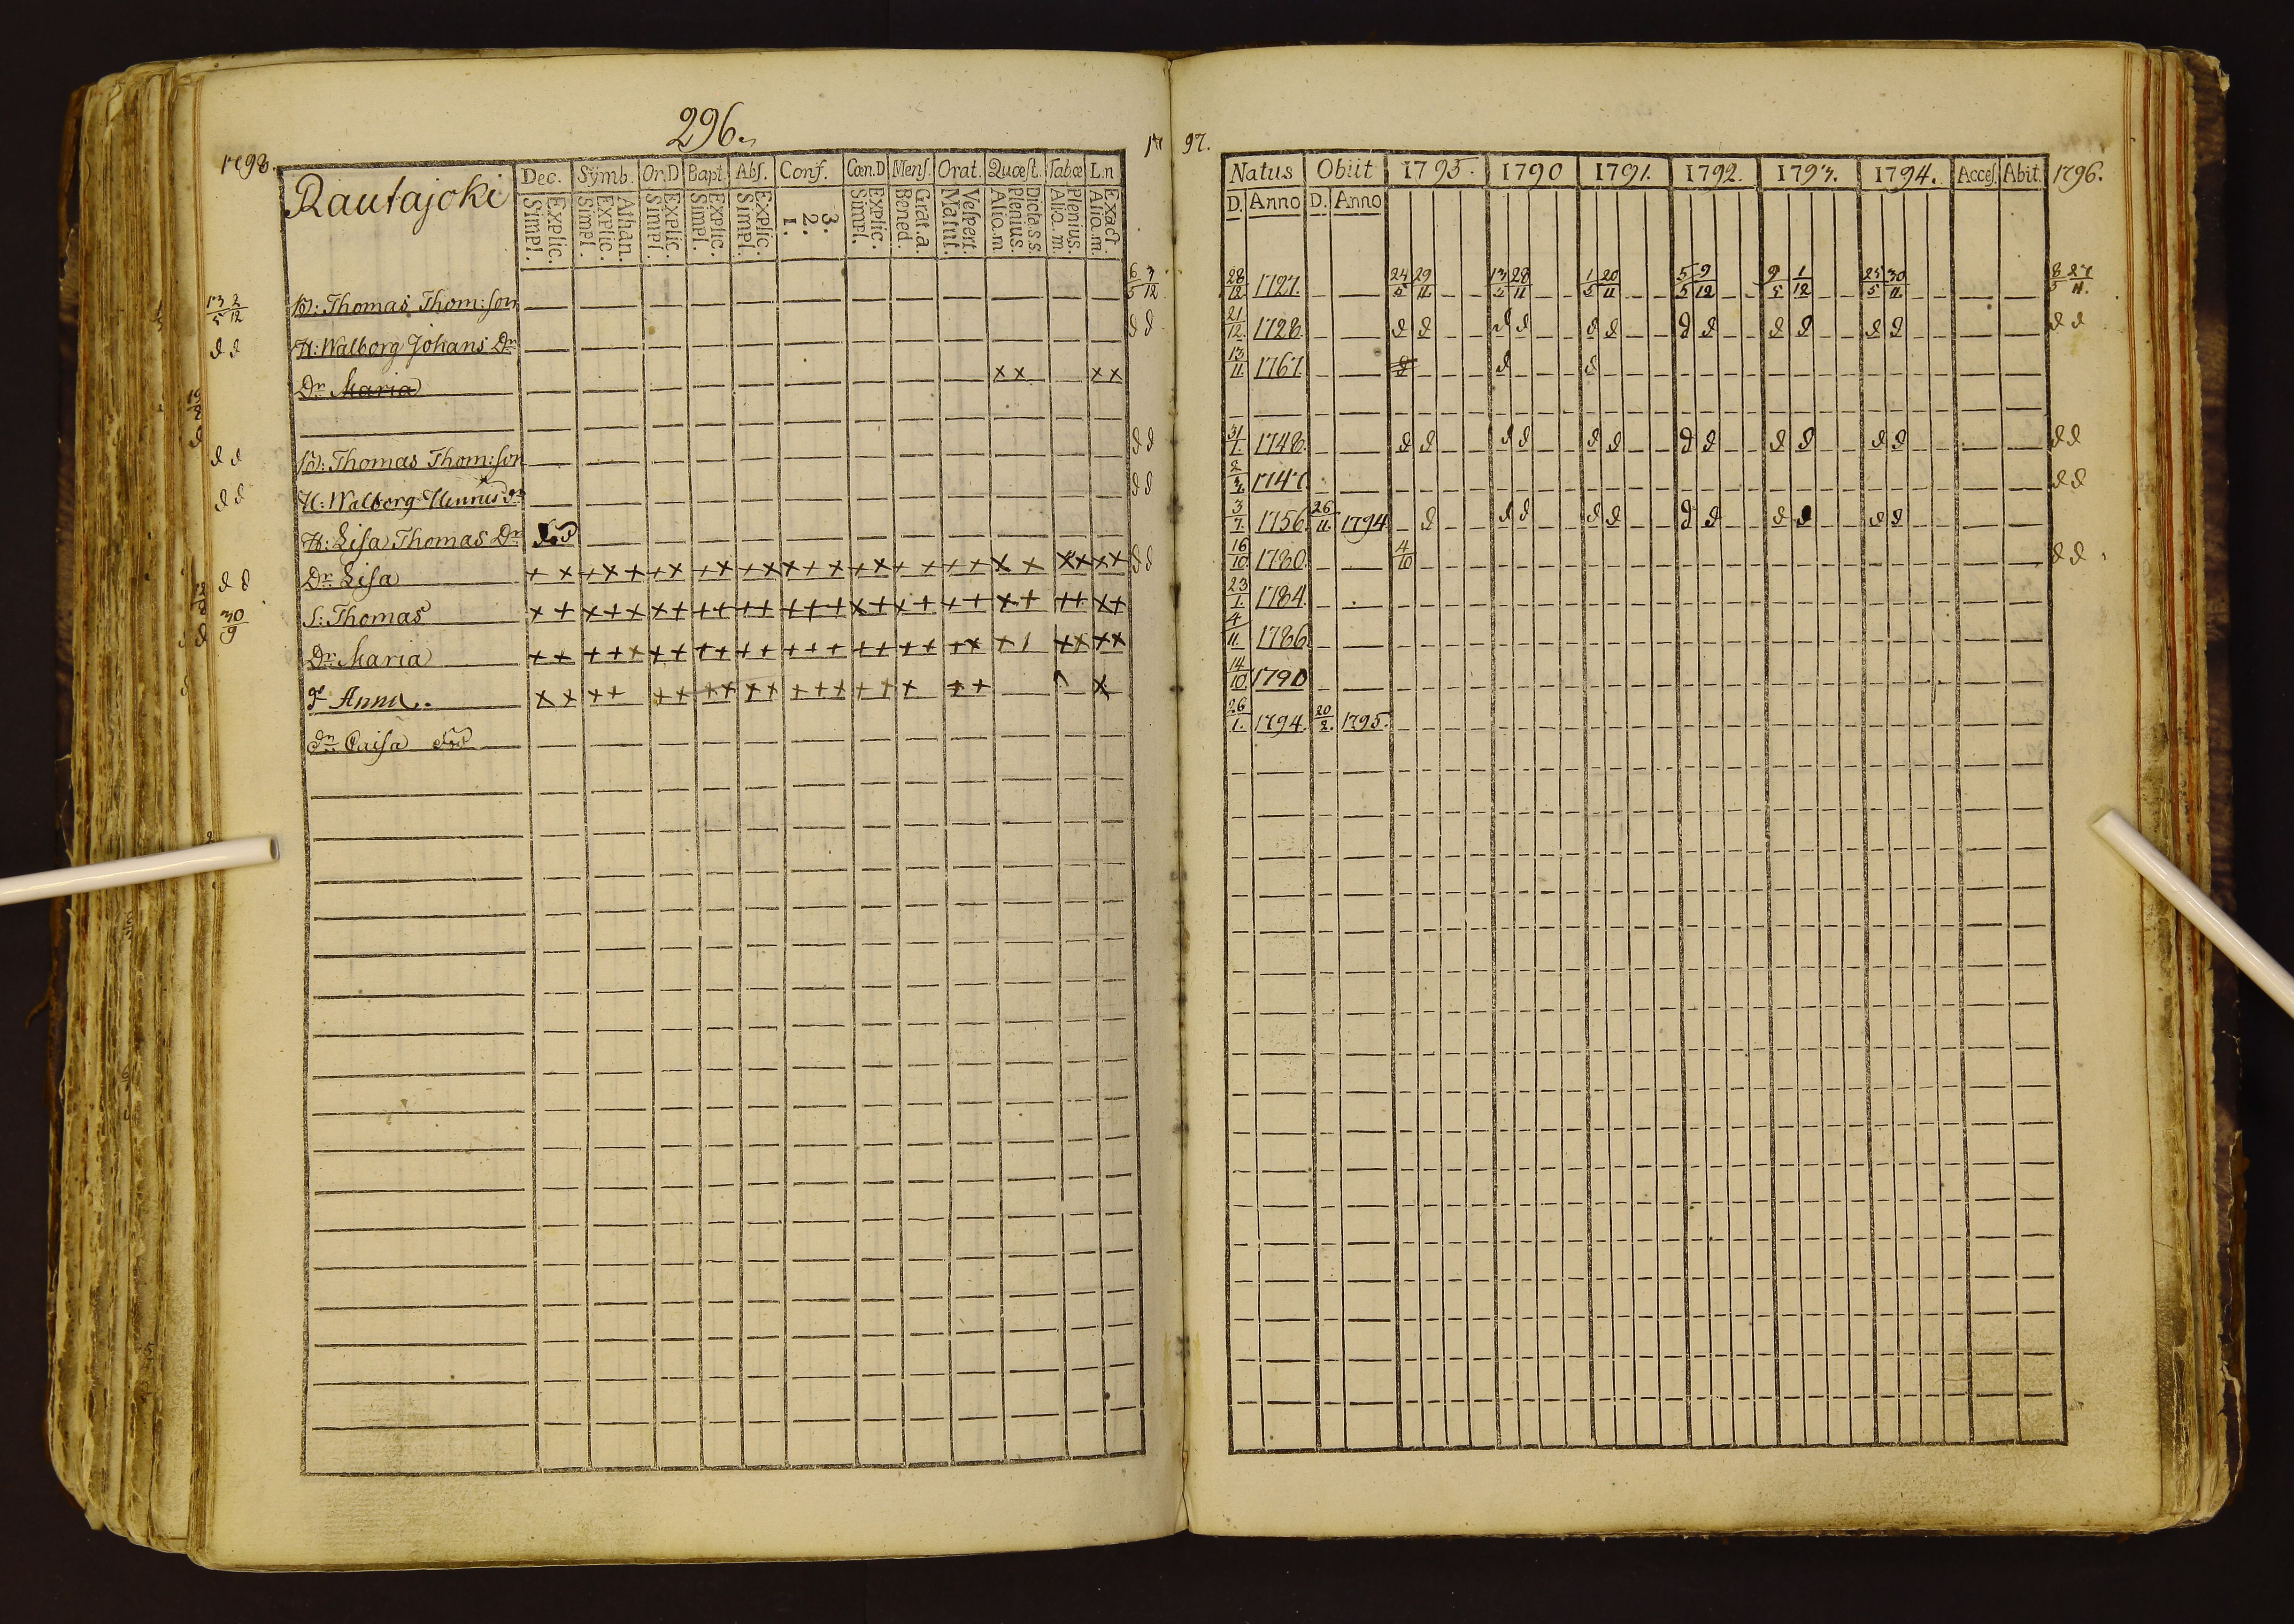 296.
1798.
Rautajoki
Dec. Symb. Or.D Bapt. Abs. Conf. Cœn.D Mens. Orat. Quæst. Tabæ L.n
Simpl. Explic. Simpl. Explic. Athan. Simpl. Explic. Simpl. Explic. Simpl. Explic. 1. 2. 3. Simpl. Explic. Bened. Grat.a. Matut. Vespert. Aliq.m Plenius. Dicta.s.s. Aliq.m. Plenius. Aliq.m. Exact
13/5 2/12 B: Thomas Thom:son 6/5 3/12
d d H: Walborg Johans Dr d d
Dr Maria x x x x
d d B: Thomas Thom:son d d
d d H: Walborg Hinrics dr d d
H: Lisa Thomas Dr
d d Dr Lisa + x + x + + x + x + x x + x + x + + + + x + x x x + d d
30/9 S: Thomas x + x + x x + + + + + + + + x + x + + + x + + + x +
Dr Maria + + + + + + + + + + + + + + + + + + + x + 1 + + x x
Anna x x + + + + + + x x + + + + + x + + x
dr Caisa
17 97.
Natus Obiit 1795. 1790 1791. 1792. 1793. 1794. Acces. Abit. 1796.
D. Anno D. Anno
28/12 1727. 24/5 29/11 13/5 28/11 1/5 20/11 5/5 9/12 9/5 1/12 25/5 30/11 8/5 27/11.
21/12 1728. d d d d d d d d d d d d d d
13/11 1767 d d d
31/1. 1748. d d d d d d d d d d d d d d
2/3. 1747 d d
3/7. 1756 26/11 1794 d d d d d d d d d d d
16/10 1780. 4/10 d d
23/1. 1784.
4/11 1786.
14/10 1790
26/1. 1794. 20/2. 1795.